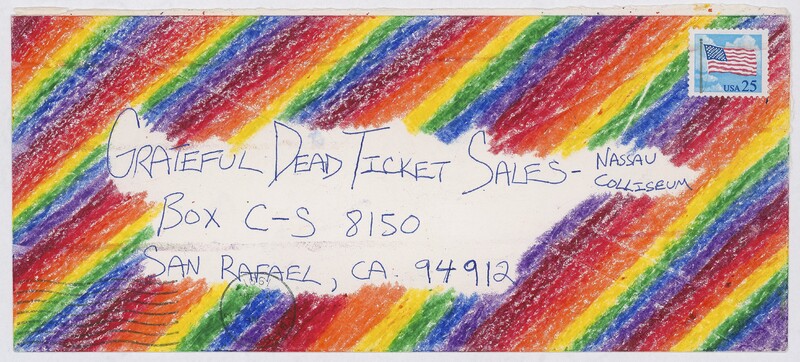 USA 25
GRATEFUL DEAD TICKET SALES - NASSAU
COLLISEUM
BOX C-S 8150
SAN RAFAEL, CA. 94912